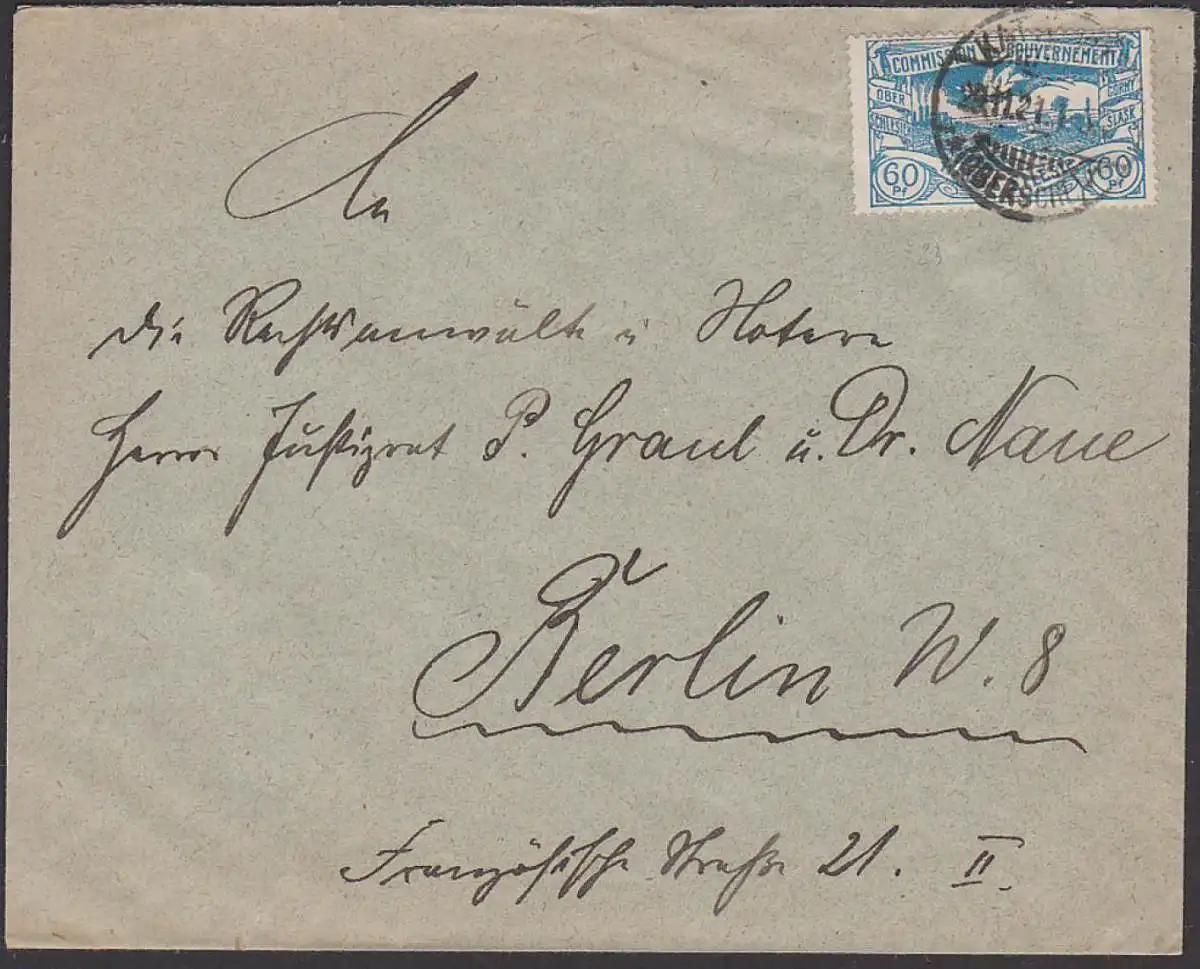 COMMISSION GOUVERNEMENT
OBER GORNY
SCHLESIEN SLASK
60 Pf 60 Pf
.11.21.
(OBERSCHL
23
An
die Rechtsanwälte u Notare
Herrn Justizrat P. Graul u. Dr. Naue
Berlin W. 8
Französische Straße 21. II.